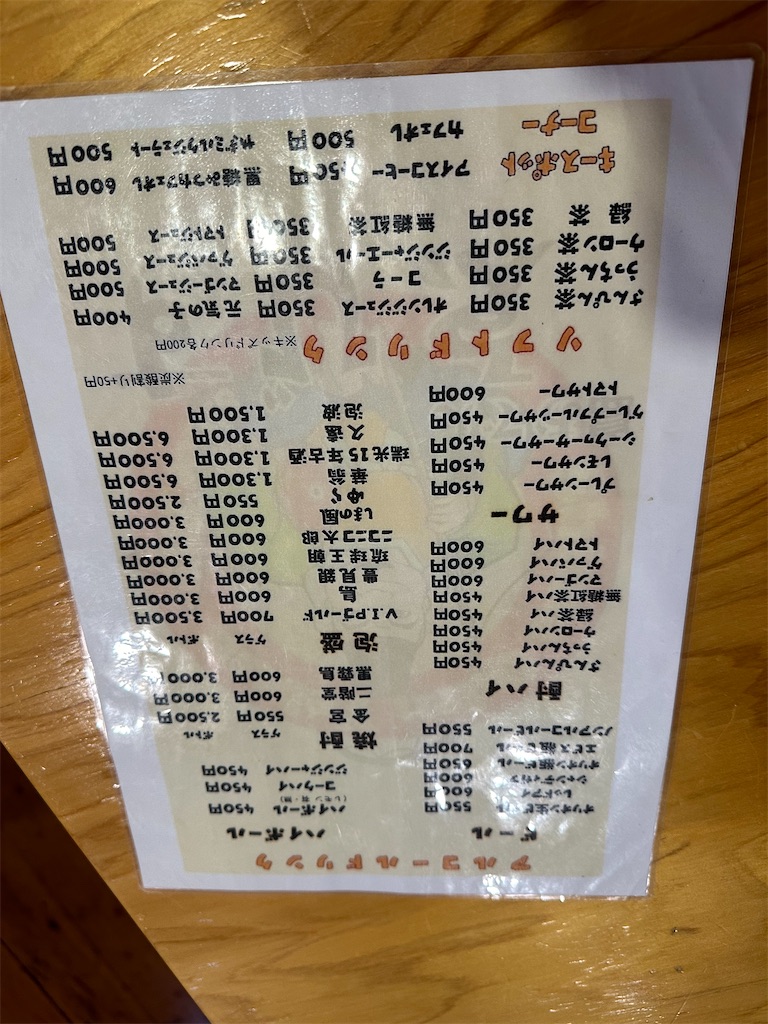 アルコールドリンク
ビール
オリオン生ビール 550円
レッドアイ 600円
シャンディガフ 600円
オリオン瓶ビール 650円
エビス瓶ビール 700円
ノンアルコールビール 550円
酎ハイ
さんぴんハイ 450円
うっちんハイ 450円
ウーロンハイ 450円
緑茶ハイ 450円
無糖紅茶ハイ 450円
マンゴーハイ 600円
グァバハイ 600円
トマトハイ 600円
サワー
プレーンサワー 450円
レモンサワー 450円
シークヮーサーサワー 450円
グレープフルーツサワー 450円
トマトサワー 600円
ハイボール
ハイボール 450円
コークハイ 450円
ジンジャーハイ 450円
焼酎 グラス ボトル
金宮 550円 2,500円
二階堂 600円 3,000円
黒霧島 600円 3,000円
泡盛 グラス ボトル
V.I.Pゴールド 700円 3,500円
島 600円 3,000円
豊見親 600円 3,000円
琉球王朝 600円 3,000円
ニコニコ太郎 600円 3,000円
しまの風 600円 3,000円
550円 2,500円
華翁 1,300円 6,500円
瑞光15年古酒 1,300円 6,500円
久遠 1,300円 6,500円
泡波 1,500円
※炭酸割り+50円
ソフトドリンク ※キッズドリンク各200円
さんぴん茶 350円
うっちん茶 350円
ウーロン茶 350円
緑茶 350円
オレンジジュース 350円
コーラ 350円
ジンジャーエール 350円
無糖紅茶 350円
元気の子 400円
マンゴージュース 500円
グァバジュース 500円
トマトジュース 500円
キースポット
コーナー
アイスコーヒー 450円
カフェオレ 500円
黒糖みつカフェオレ 600円
やぎミルクジェラート 500円